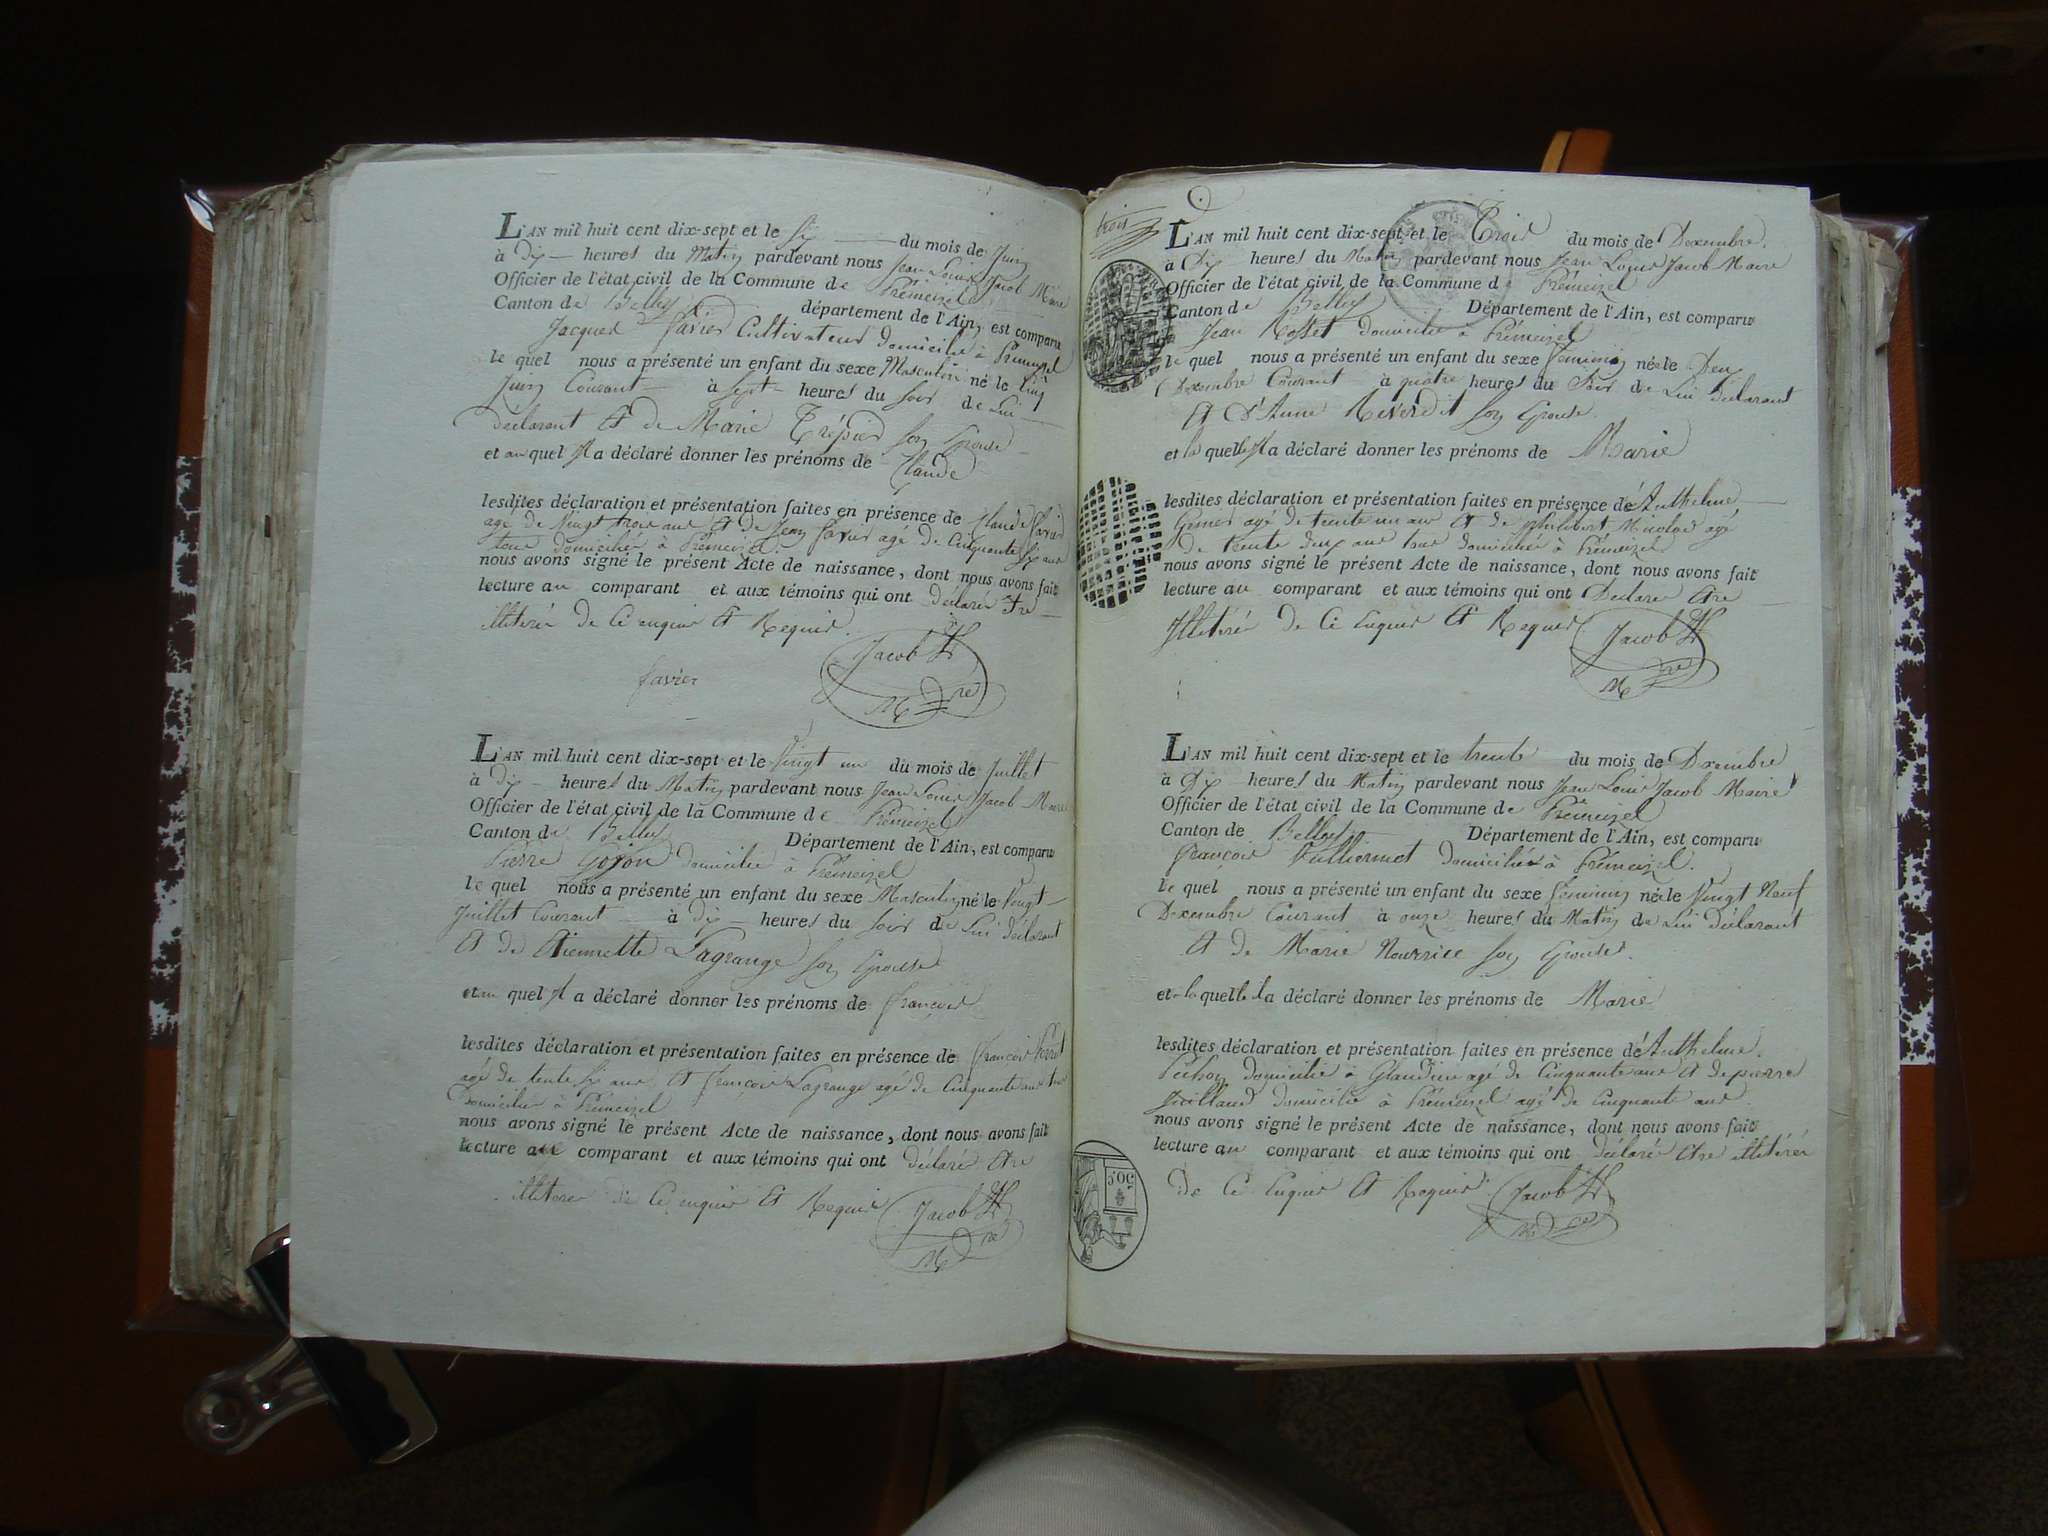 L'AN mil huit cent dix-sept et le Six du mois de Juin
à Dix heures du Matin pardevant nous Jean Louis Jacob Maire
Officier de l'état civil de la Commune de Prémeizel
Canton de Belley département de l'Ain, est comparu
Jacques Favier Cultivateur domicilié à Prémeyzel
le quel nous a présenté un enfant du sexe Masculin né le Cinq
Juin Courant à Sept heures du soir de Lui
déclarant Et de Marie Trépier son Epouse
et au quel Il a déclaré donner les prénoms de Claude
lesdites déclaration et présentation faites en présence de Claude Favier
agé de Vingt trois ans Et de Jean Favier agé de Cinquante Six ans
tous domiciliés à Prémeizel
nous avons signé le présent Acte de naissance, dont nous avons fait
lecture au comparant et aux témoins qui ont déclaré être
illitérés de Ce enquis Et Requis.
Jacob
favier
Mre
L'AN mil huit cent dix-sept et le Vingt un du mois de Juillet
à Dix heures du Matin pardevant nous Jean Louis Jacob Maire
Officier de l'état civil de la Commune de Prémeizel
Canton de Belley Département de l'Ain, est comparu
Pierre Gojon domicilié à Prémeizel
le quel nous a présenté un enfant du sexe Masculin né le Vingt
Juillet Courant à Dix heures du soir de Lui déclarant
Et de Etiennette Lagrange son Epouse
et au quel Il a déclaré donner les prénoms de François
lesdites déclaration et présentation faites en présence de François
agé de trente Six ans Et François Lagrange agé de Cinquante ans tous
domiciliés à Prémeizel
nous avons signé le présent Acte de naissance, dont nous avons fait
lecture au comparant et aux témoins qui ont déclaré Etre
illiteres de Ce enquis Et Requis
Jacob
Mre
trois
L'AN mil huit cent dix-sept et le Trois du mois de Dexembre
à Dix heures du Matin pardevant nous Jean Louis Jacob Maire
Officier de l'état civil de la Commune de Prémeizel
Canton de Belley Département de l'Ain, est comparu
Jean Rosset domicilié à Prémeizel
le quel nous a présenté un enfant du sexe feminin née le Deux
Dexembre Courant à quatre heures du Soir de Lui déclarant
Et d'Anne Reverdit son Epouse
et la quelle Il a déclaré donner les prénoms de Marie
lesdites déclaration et présentation faites en présence de Anthelme
agé de trente un ans Et de Philibert agé
de trente deux ans tous domiciliés à Prémeizel
nous avons signé le présent Acte de naissance, dont nous avons fait
lecture au comparant et aux témoins qui ont Déclaré Etre
Illitérés de Ce Enquis Et Requis
Jacob
Mre
L'AN mil huit cent dix-sept et le trente du mois de Dexembre
à Dix heures du Matin pardevant nous Jean Louis Jacob Maire
Officier de l'état civil de la Commune de Prémeizel
Canton de Belley Département de l'Ain, est comparu
François domicilié à Prémeizel.
le quel nous a présenté un enfant du sexe feminin née le Vingt Neuf
Dexembre Courant à onze heures du Matin de Lui déclarant
Et de Marie Nourrice son Epouse.
et la quelle Il a déclaré donner les prénoms de Marie
lesdites déclaration et présentation faites en présence de Anthelme
domicilié à Glandieu agé de Cinquante ans Et de pierre
domicilié à Prémeizel agé de Cinquante ans.
nous avons signé le présent Acte de naissance, dont nous avons fait
lecture au comparant et aux témoins qui ont déclaré Etre illitérés
de Ce Enquis Et Requis
Jacob
Mre
50C